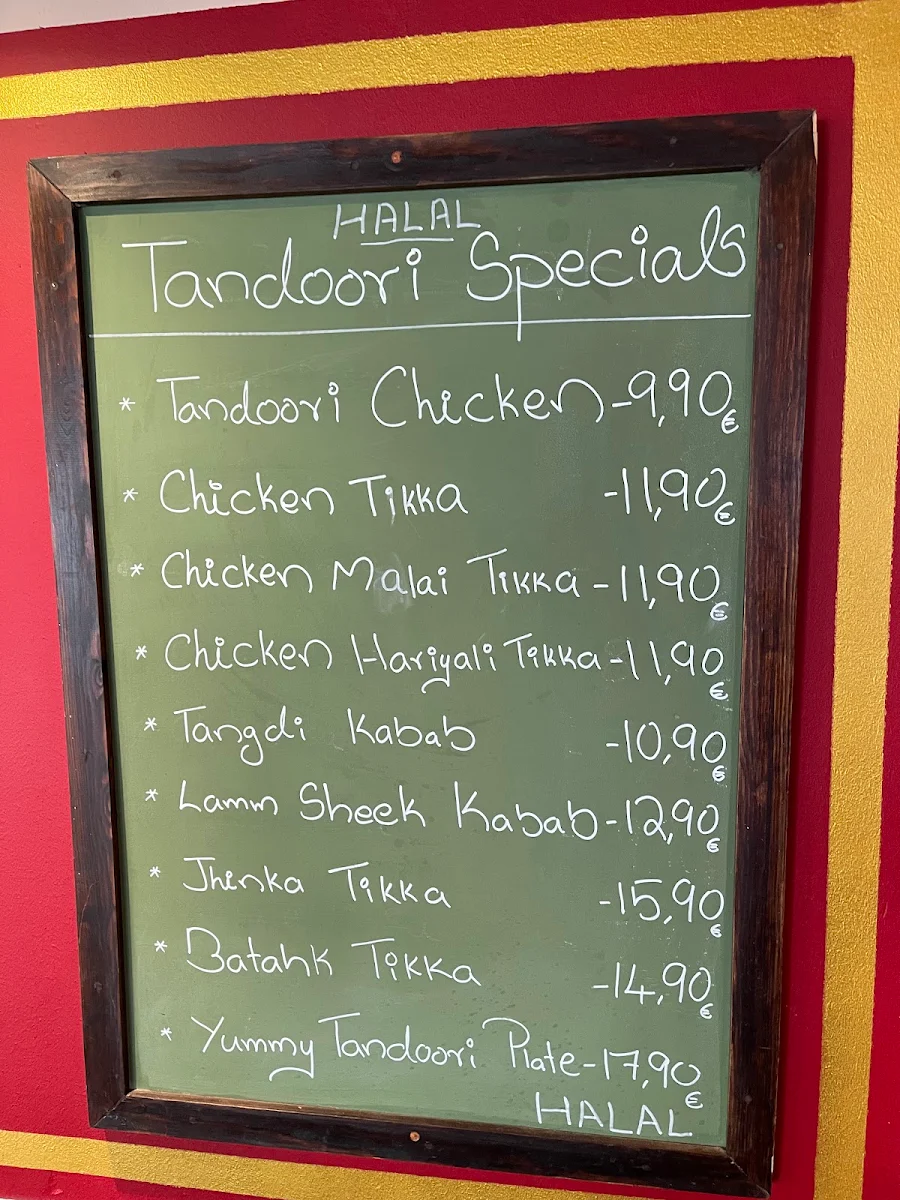 HALAL
Tandoori Specials
* Tandoori Chicken -9,90€
* Chicken Tikka -11,90€
* Chicken Malai Tikka -11,90€
* Chicken Hariyali Tikka -11,90€
* Tangdi Kabab -10,90€
* Lamm Sheek Kabab -12,90€
* Jhinka Tikka -15,90€
* Batahk Tikka -14,90€
* Yummy Tandoori Plate -17,90€
HALAL